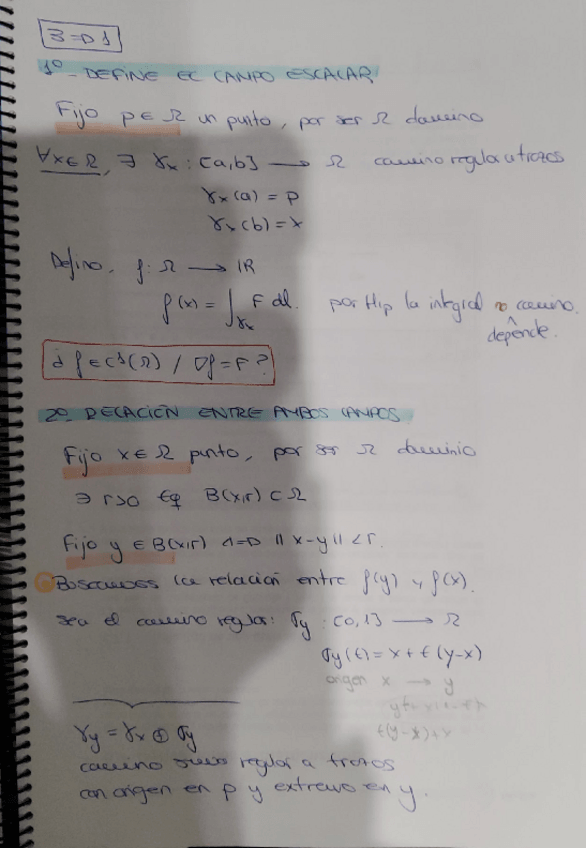 3 =D 1
1º- DEFINE EL CAMPO ESCALAR
Fijo p ∈ Ω un punto, por ser Ω dominio
∀x∈Ω, ∃ γx : [a,b] → Ω camino regular a trozos
γx(a) = p
γx(b) = x
Defino, f: Ω → IR
f(x) = ∫γx F dl. por Hip la integral no camino.
depende.
¿ f ∈ C¹(Ω) / ∇f = F ?
2º- RELACIÓN ENTRE AMBOS CAMPOS.
Fijo x ∈ Ω punto, por ser Ω dominio
∃ r>0 tq B(x,r) ⊂ Ω
Fijo y ∈ B(x,r) <=D ||x-y|| < r.
Buscamos la relación entre f(y) y f(x).
sea el camino regular: σy : [0,1] → Ω
σy(t) = x + t(y-x)
origen x → y
t(y-x)+x
γy = γx ⊕ σy
camino regular a trozos
con origen en p y extremo en y.